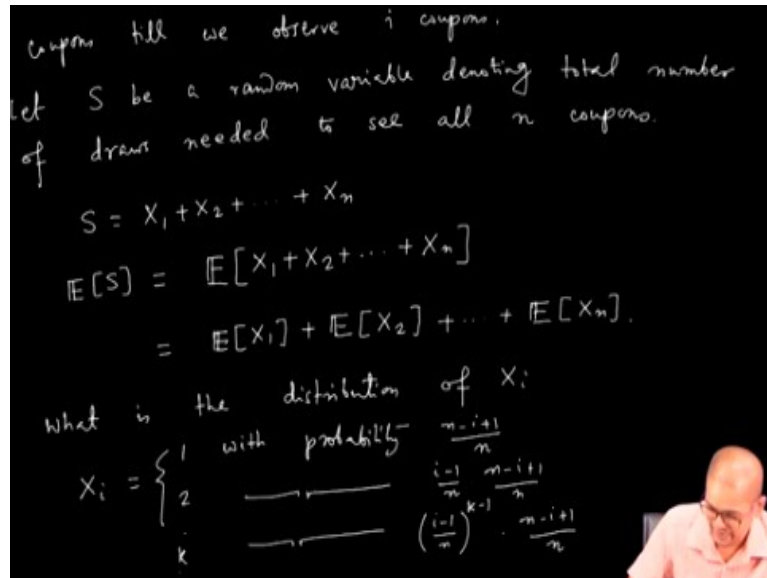 coupons till we observe i coupons.
Let S be a random variable denoting total number
of draws needed to see all n coupons.
S = X₁ + X₂ + ··· + Xₙ
𝔼[S] = 𝔼[X₁ + X₂ + ··· + Xₙ]
= 𝔼[X₁] + 𝔼[X₂] + ··· + 𝔼[Xₙ].
What is the distribution of Xᵢ
Xᵢ = { 1 with probability (n-i+1)/n
2 —〃— (i-1)/n (n-i+1)/n
⋮
k —〃— ((i-1)/n)^(k-1) · (n-i+1)/n